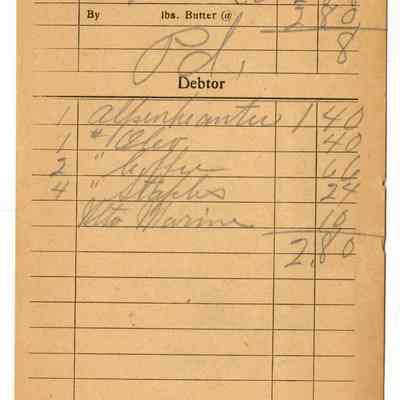 By lbs. Butter @ 2 80
8
Pd,
Debtor
1 1 40
1 # Oleo, 40
2 " Coffee 66
4 " Staples 24
10
2.80